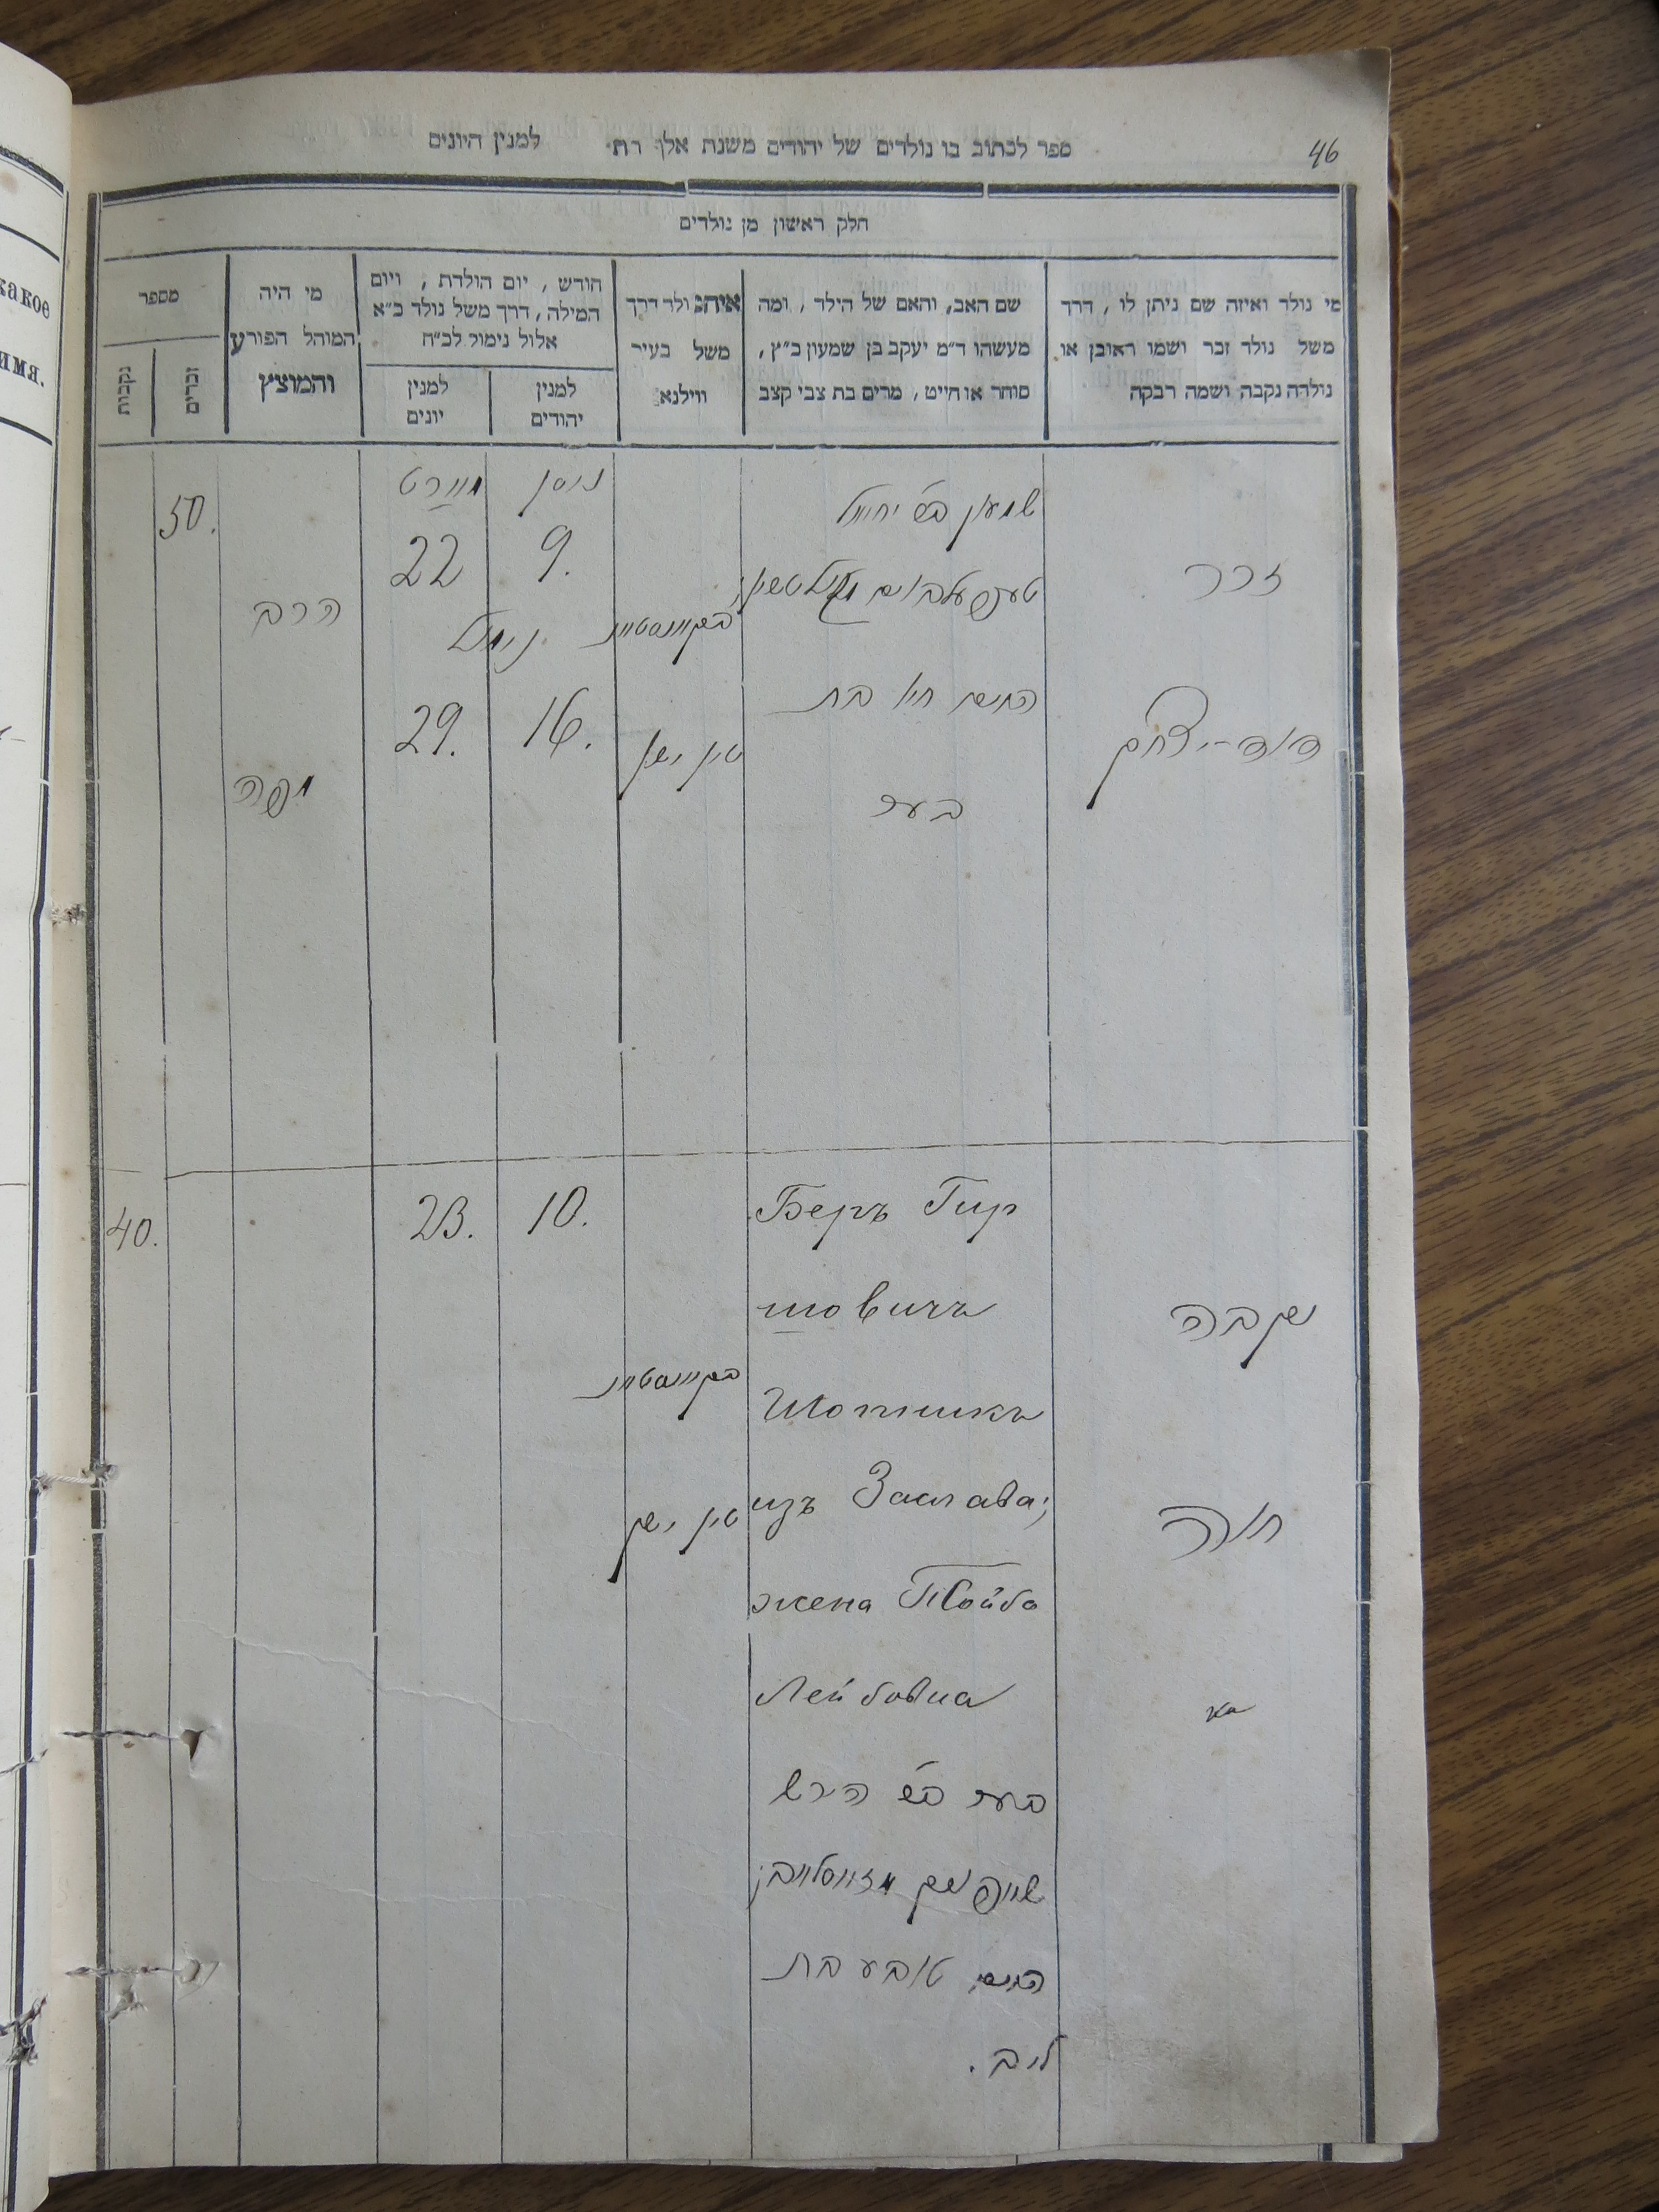 46
ספר לכתוב בו נולדים של יהודים משנת אלף רת למנין היונים
חלק ראשון מן נולדים
מי נולד ואיזה שם ניתן לו, דרך
משל נולד זכר ושמו ראובן או
נולדה נקבה ושמה רבקה
שם האב, והאם של הילד, ומה
מעשהו ד״מ יעקב בן שמעון כ״ץ,
סוחר או חייט, מרים בת צבי קצב
איה נולד דרך
משל בעיר
ווילנא
חודש, יום הולדת, ויום
המילה, דרך משל נולד כ״א
אלול נימול לכ״ח
למנין
יהודים
למנין
יונים
מי היה
המוהל הפורע
והמוצץ
מספר
זכרים
נקבות
זכר
שמעון ב״ר יחיאל
האשה חיה בת
בער
טין ישן
ניסן
9.
נימול
16.
מארט
22
29.
הרב
יפה
50.
נקבה
חוה
Беръ Гир
шовичъ
Шопникъ
изъ Заслава;
жена Тойба
Лейбовна
בער ב״ר הירש
האשה טובע בת
ליב.
טין ישן
10.
23.
40.